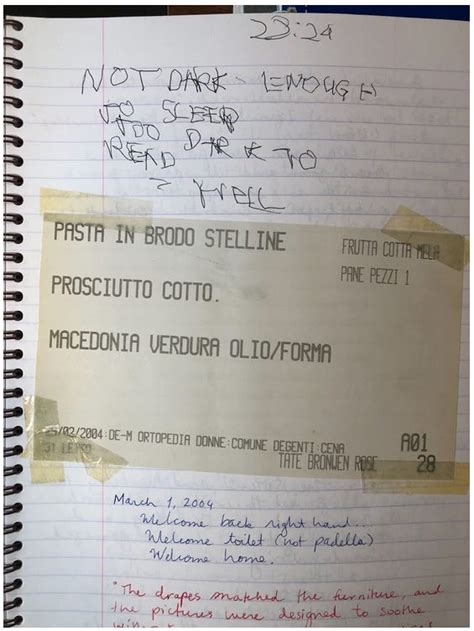 23:24
NOT DARK ENOUGH
TO SLEEP
TOO DARK TO
READ
= HELL
PASTA IN BRODO STELLINE
FRUTTA COTTA MELA
PANE PEZZI 1
PROSCIUTTO COTTO.
MACEDONIA VERDURA OLIO/FORMA
29/02/2004:DE-M ORTOPEDIA DONNE:COMUNE DEGENTI:CENA A01
31 LETTO TATE BRONWEN ROSE 28
March 1, 2004
Welcome back right hand...
Welcome toilet (not padella)
Welcome home.
"The drapes matched the furniture, and
the pictures were designed to soothe